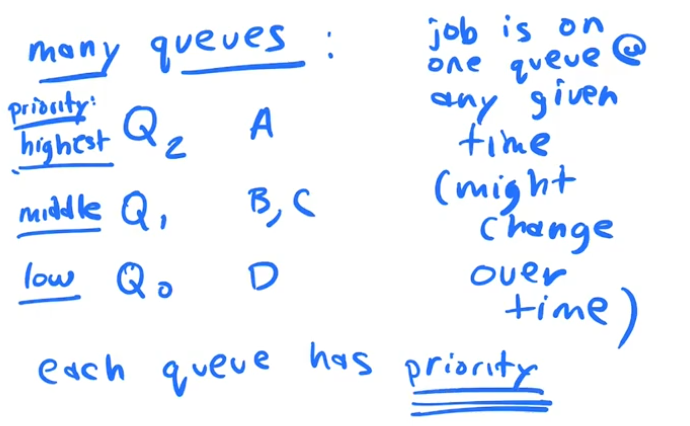 many queues :
priority:
highest Q2 A
middle Q1 B, C
low Q0 D
job is on
one queue @
any given
time
(might
change
over
time)
each queue has priority